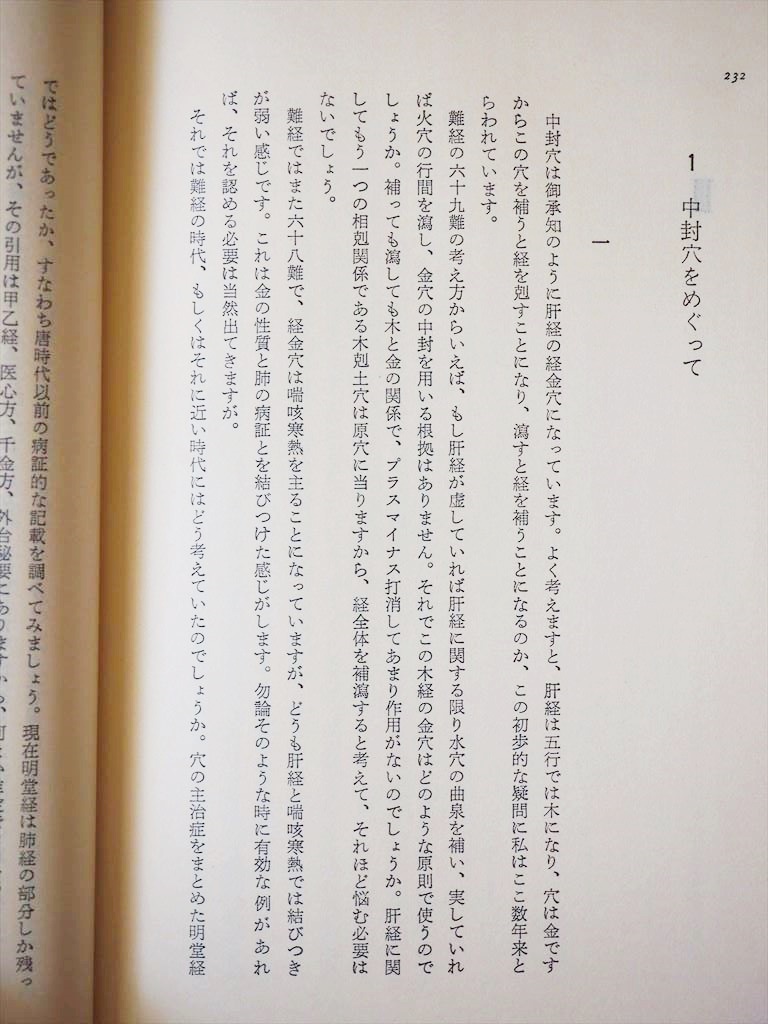 232
1 中封穴をめぐって
一
中封穴は御承知のように肝経の経金穴になっています。よく考えますと、肝経は五行では木になり、穴は金です
からこの穴を補うと経を剋すことになり、瀉すと経を補うことになるのか、この初歩的な疑問に私はここ数年来と
らわれています。
難経の六十九難の考え方からいえば、もし肝経が虚していれば肝経に関する限り水穴の曲泉を補い、実していれ
ば火穴の行間を瀉し、金穴の中封を用いる根拠はありません。それでこの木経の金穴はどのような原則で使うので
しょうか。補っても瀉しても木と金の関係で、プラスマイナス打消してあまり作用がないのでしょうか。肝経に関
してもう一つの相剋関係である木剋土穴は原穴に当りますから、経全体を補瀉すると考えて、それほど悩む必要は
ないでしょう。
難経ではまた六十八難で、経金穴は喘咳寒熱を主ることになっていますが、どうも肝経と喘咳寒熱では結びつき
が弱い感じです。これは金の性質と肺の病証とを結びつけた感じがします。勿論そのような時に有効な例があれ
ば、それを認める必要は当然出てきますが。
それでは難経の時代、もしくはそれに近い時代にはどう考えていたのでしょうか。穴の主治症をまとめた明堂経
ではどうであったか、すなわち唐時代以前の病証的な記載を調べてみましょう。現在明堂経は肺経の部分しか残っ
ていませんが、その引用は甲乙経、医心方、千金方、外台秘要にありますから、